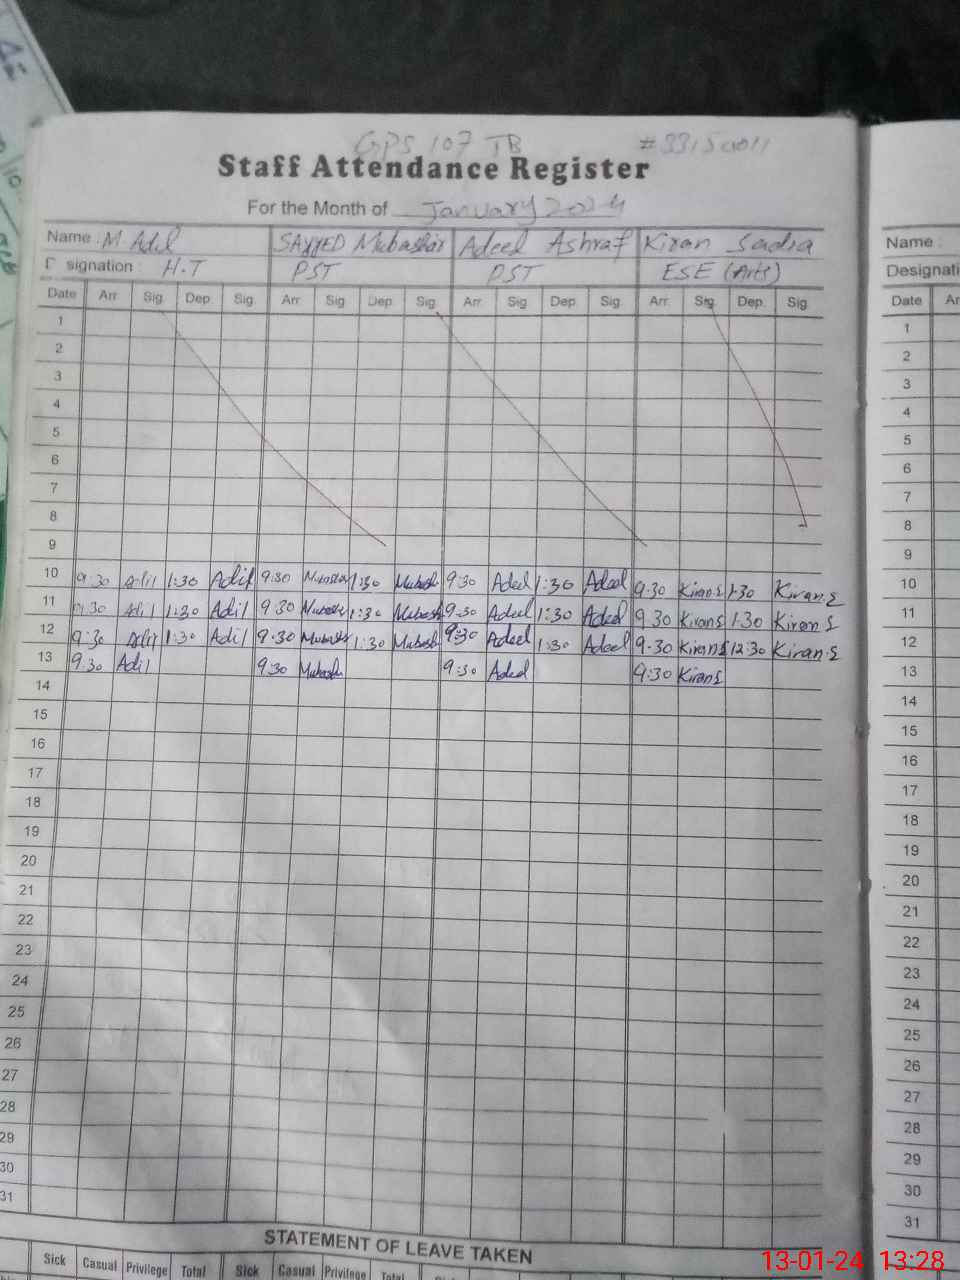 GPS 107 JB #33150011
Staff Attendance Register
For the Month of January 2024
Name : M. Adil SAYYED Mubashir Adeel Ashraf Kiran Sadia
signation : H.T PST PST ESE (Arts)
Date Arr. Sig. Dep. Sig. Arr. Sig. Dep. Sig. Arr. Sig. Dep. Sig. Arr. Sig. Dep. Sig.
1
2
3
4
5
6
7
8
9
10 9:30 Adil 1:30 Adil 9:30 1:30 Mubash 9:30 Adeel 1:30 Adeel 9:30 Kiran.S 1:30 Kiran.S
11 9:30 Adil 1:30 Adil 9:30 1:30 Mubash 9:30 Adeel 1:30 Adeel 9.30 Kiran S 1.30 Kiran S
12 9:30 Adil 1:30 Adil 9:30 1:30 Mubash 9:30 Adeel 1:30 Adeel 9.30 Kiran S 12:30 Kiran.S
13 9:30 Adil 9:30 Mubash 9:30 Adeel 9:30 Kiran S
14
15
16
17
18
19
20
21
22
23
24
25
26
27
28
29
30
31
STATEMENT OF LEAVE TAKEN
Sick Casual Privilege Total Sick Casual Privilege Total
Name :
Designati
Date Ar
1
2
3
4
5
6
7
8
9
10
11
12
13
14
15
16
17
18
19
20
21
22
23
24
25
26
27
28
29
30
31
13-01-24 13:28